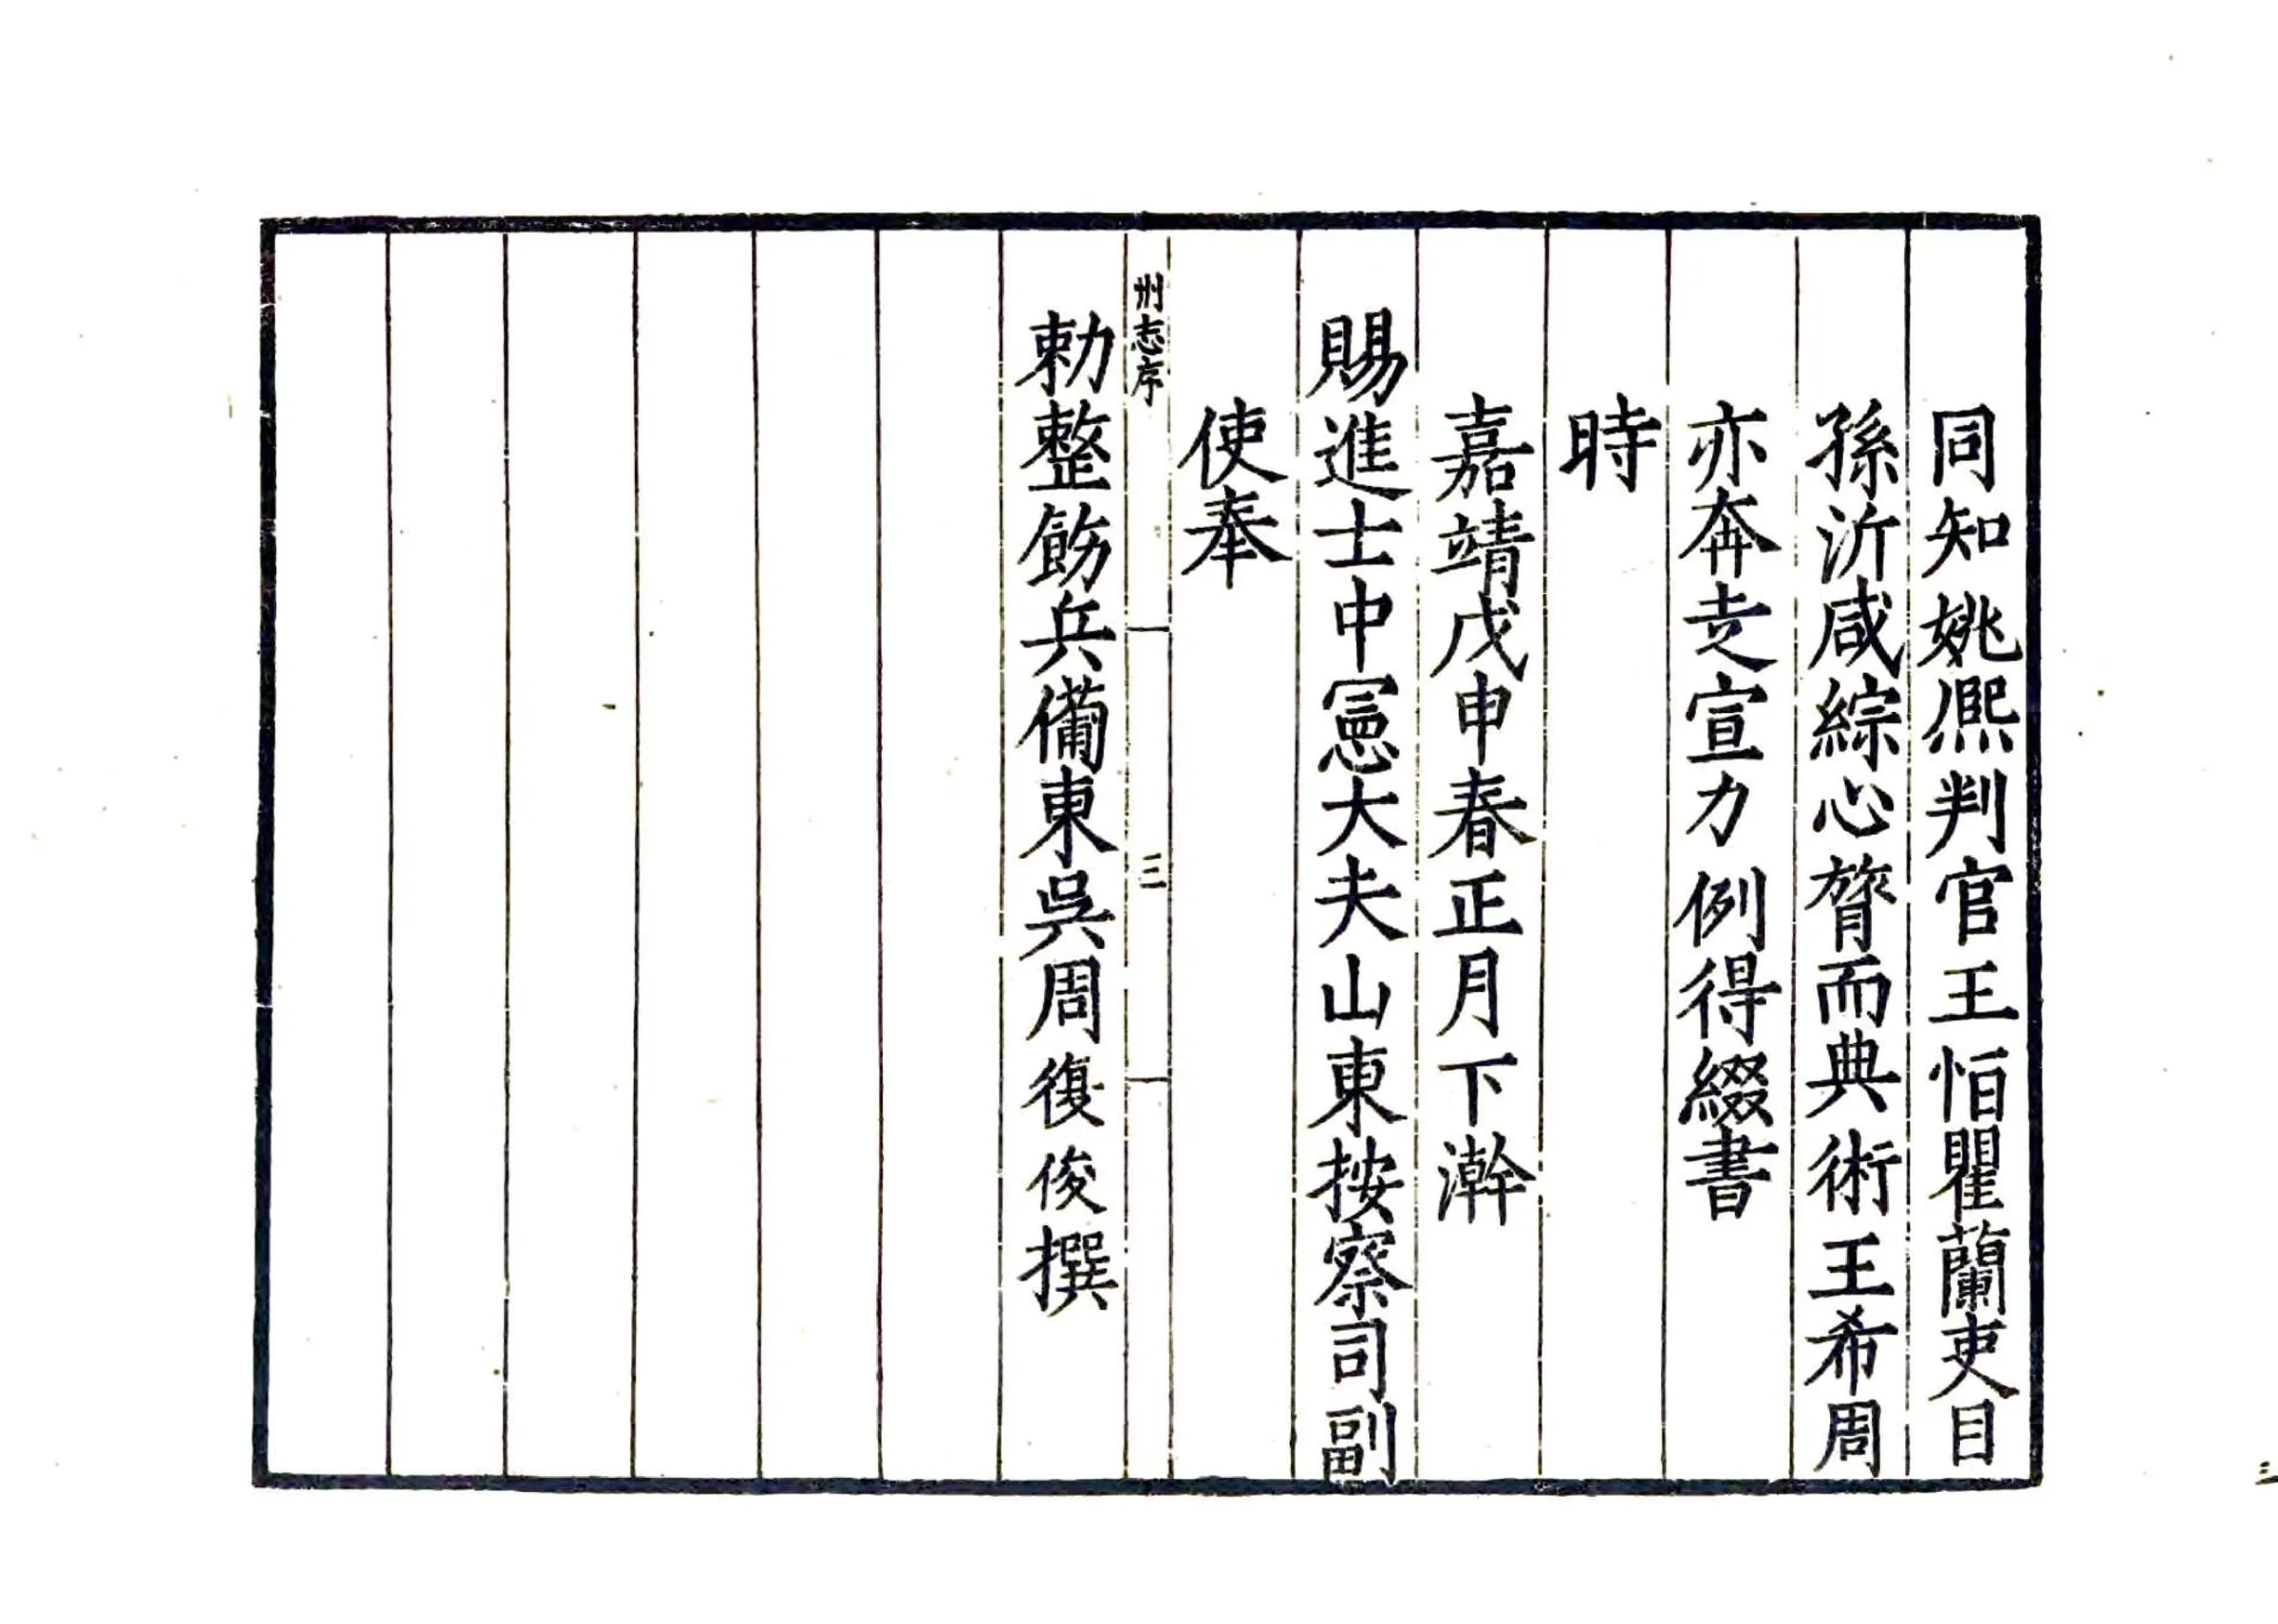 同知姚熈判官王怕瞿蘭吏目
孫沂咸綜心膂而典術王希周
亦奔走宣力例得綴書
時
嘉靖戊申春正月下澣
賜進士中憲大夫山東按察司副
使奉
州志序
三
勅整飭兵備東吳周復俊撰
三